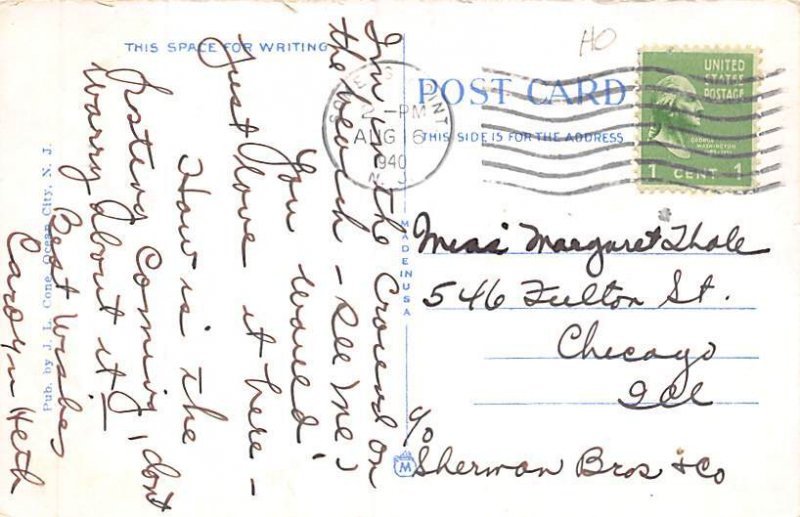 THIS SPACE FOR WRITING
I'm in the Crowd on
the beach - See me?
You would
just love it here -
How is the
posting coming, dont
worry about it!
Best Wishes
Carolyn Heth
Pub. by J. L. Cone, Ocean City, N. J.
MADE IN USA
HO
POST CARD
THIS SIDE IS FOR THE ADDRESS
-PM
AUG 6
1940
N. J.
UNITED
STATES
POSTAGE
GEORGE
WASHINGTON
1 CENT 1
Miss Margaret Thale
546 Fulton St.
Chicago
Ill
c/o
M
Sherman Bros & Co